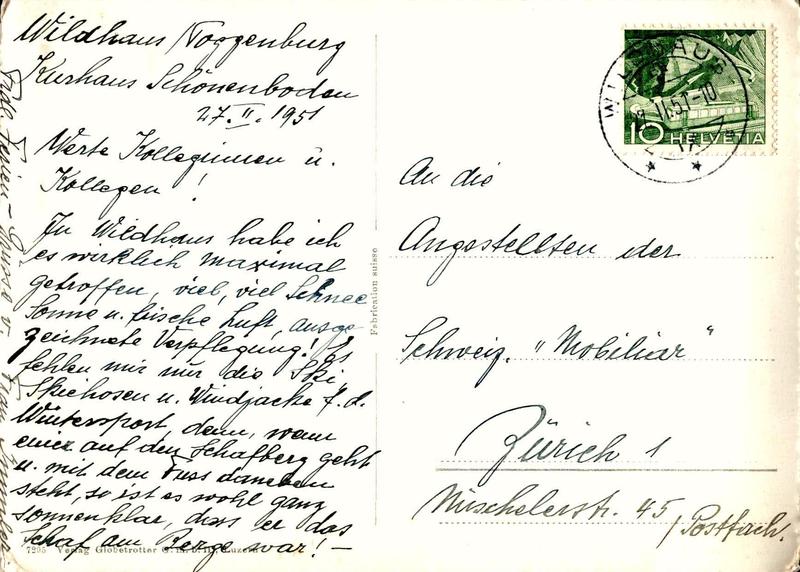 Wildhaus/Toggenburg
Kurhaus Schönenboden
27. II. 1951
Werte Kolleginnen u.
Kollegen!
In Wildhaus habe ich
es wirklich maximal
getroffen, viel, viel Schnee
Sonne u. frische Luft, ausge-
zeichnete Verpflegung! Es
fehlen mir nur die Ski
Skiehosen u. Windjacke f. d.
Wintersport, denn, wenn
einer auf den Schafberg geht
u. mit dem Fuss daneben
steht, so ist es wohl ganz
sonnenklar, dass er das
Schaf am Berge war! —
Grüsse v.
7205 Verlag Globetrotter G.m.b.H., Luzern
Fabrication suisse
WILDHAUS
II.51-10
10 HELVETIA
An die
Angestellten der
Schweiz. "Mobiliar"
Zürich 1
Nüschelerstr. 45
/Postfach.